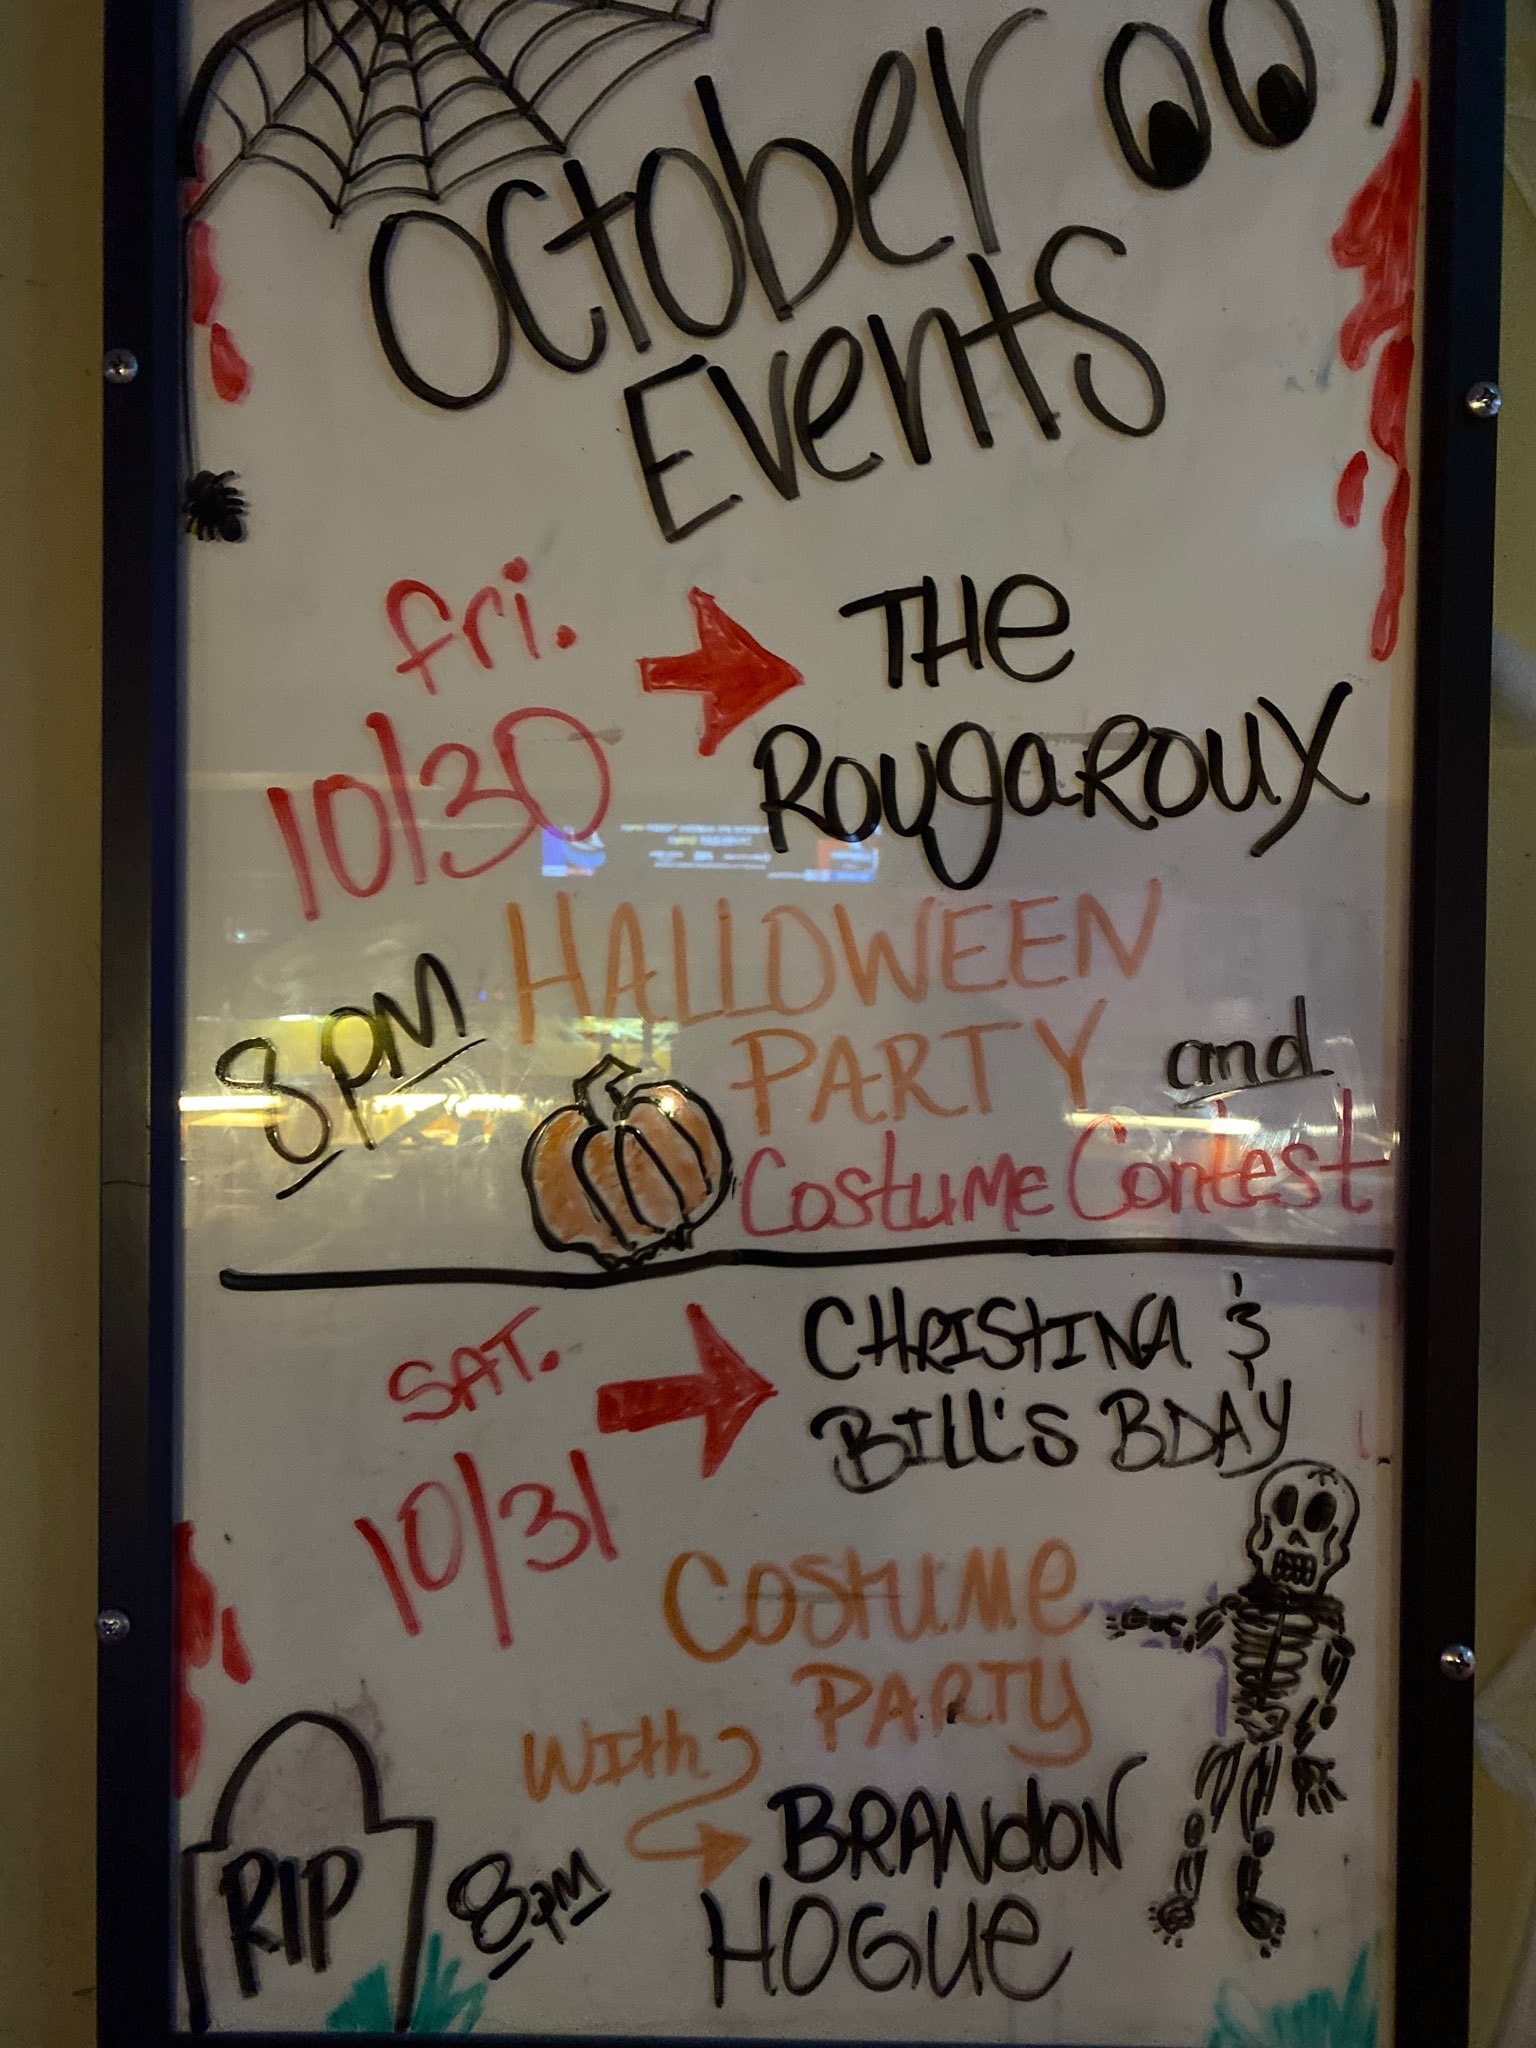 October
Events
fri.
10/30
THe
RougaRoux
8PM
HALLOWEEN
PARTY and
Costume Contest
SAT.
10/31
CHRISTINA &
BILL'S BDAY
Costume
PARTY
WITH
BRANdON
HOGUe
8PM
RIP